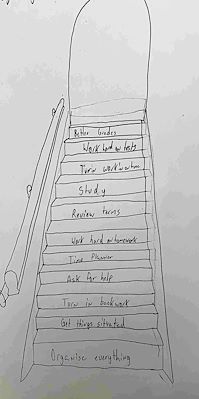 Better Grades
Work hard on tests
Turn work in on time
Study
Review terms
Work hard on homework
Time Planner
Ask for help
Turn in bookwork
Get things situated
Organise everything